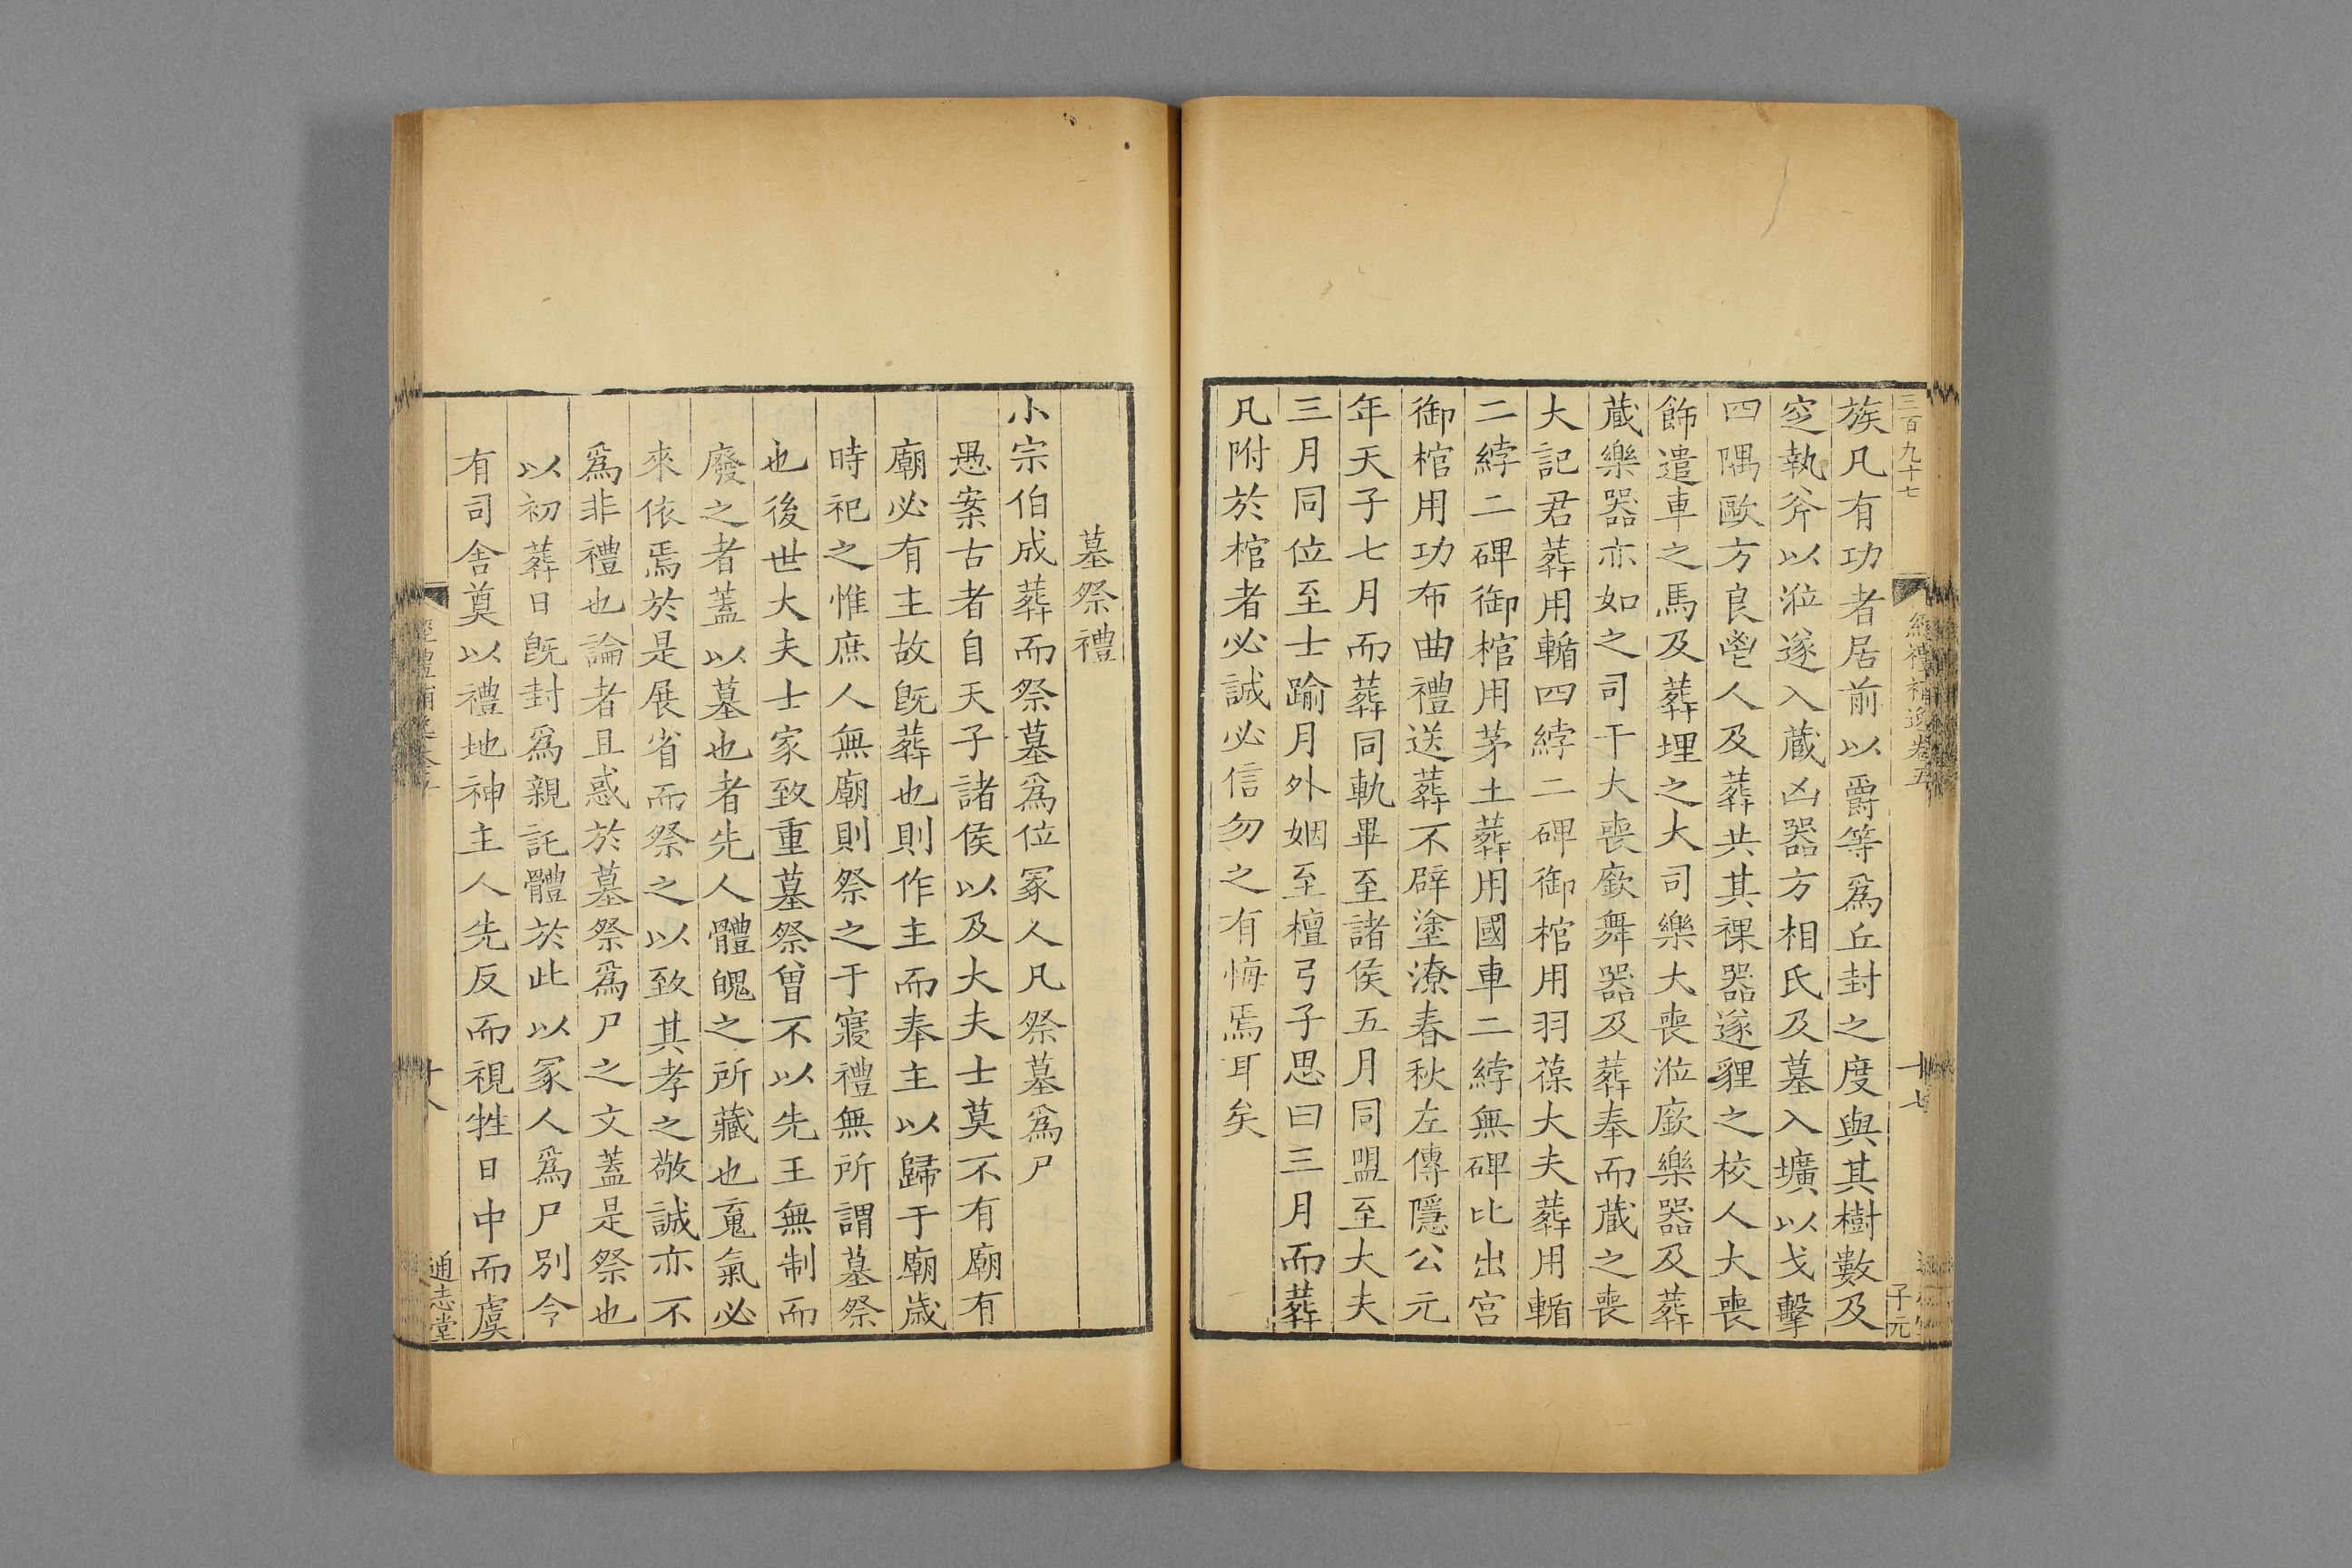 三百九十七
經禮補逸卷五
十七
子元
族凡有功者居前以爵等爲丘封之度與其樹數及
窆執斧以涖遂入蔵凶器方相氏及墓入壙以戈擊
四隅歐方良鬯人及葬共其祼器遂貍之校人大喪
飾遣車之馬及葬埋之大司樂大喪涖廞樂器及葬
蔵樂器亦如之司干大喪廞舞器及葬奉而蔵之喪
大記君葬用輴四綍二碑御棺用羽葆大夫葬用輴
二綍二碑御棺用茅土葬用國車二綍無碑比出宫
御棺用功布曲禮送葬不辟塗潦春秋左傳隱公元
年天子七月而葬同軌畢至諸侯五月同盟至大夫
三月同位至士踰月外姻至檀弓子思曰三月而葬
凡附於棺者必誠必信勿之有悔焉耳矣
墓祭禮
小宗伯成葬而祭墓爲位冢人凡祭墓爲尸
愚案古者自天子諸侯以及大夫士莫不有廟有
廟必有主故旣葬也則作主而奉主以歸于廟歳
時祀之惟庶人無廟則祭之于寢禮無所謂墓祭
也後世大夫士家致重墓祭曾不以先王無制而
廢之者蓋以墓也者先人體魄之所藏也䰟氣必
來依焉於是展省而祭之以致其孝之敬誠亦不
爲非禮也論者且惑於墓祭爲尸之文蓋是祭也
以初葬日旣封爲親託體於此以冢人爲尸別令
有司舍奠以禮地神主人先反而視牲日中而虞
十八
通志堂